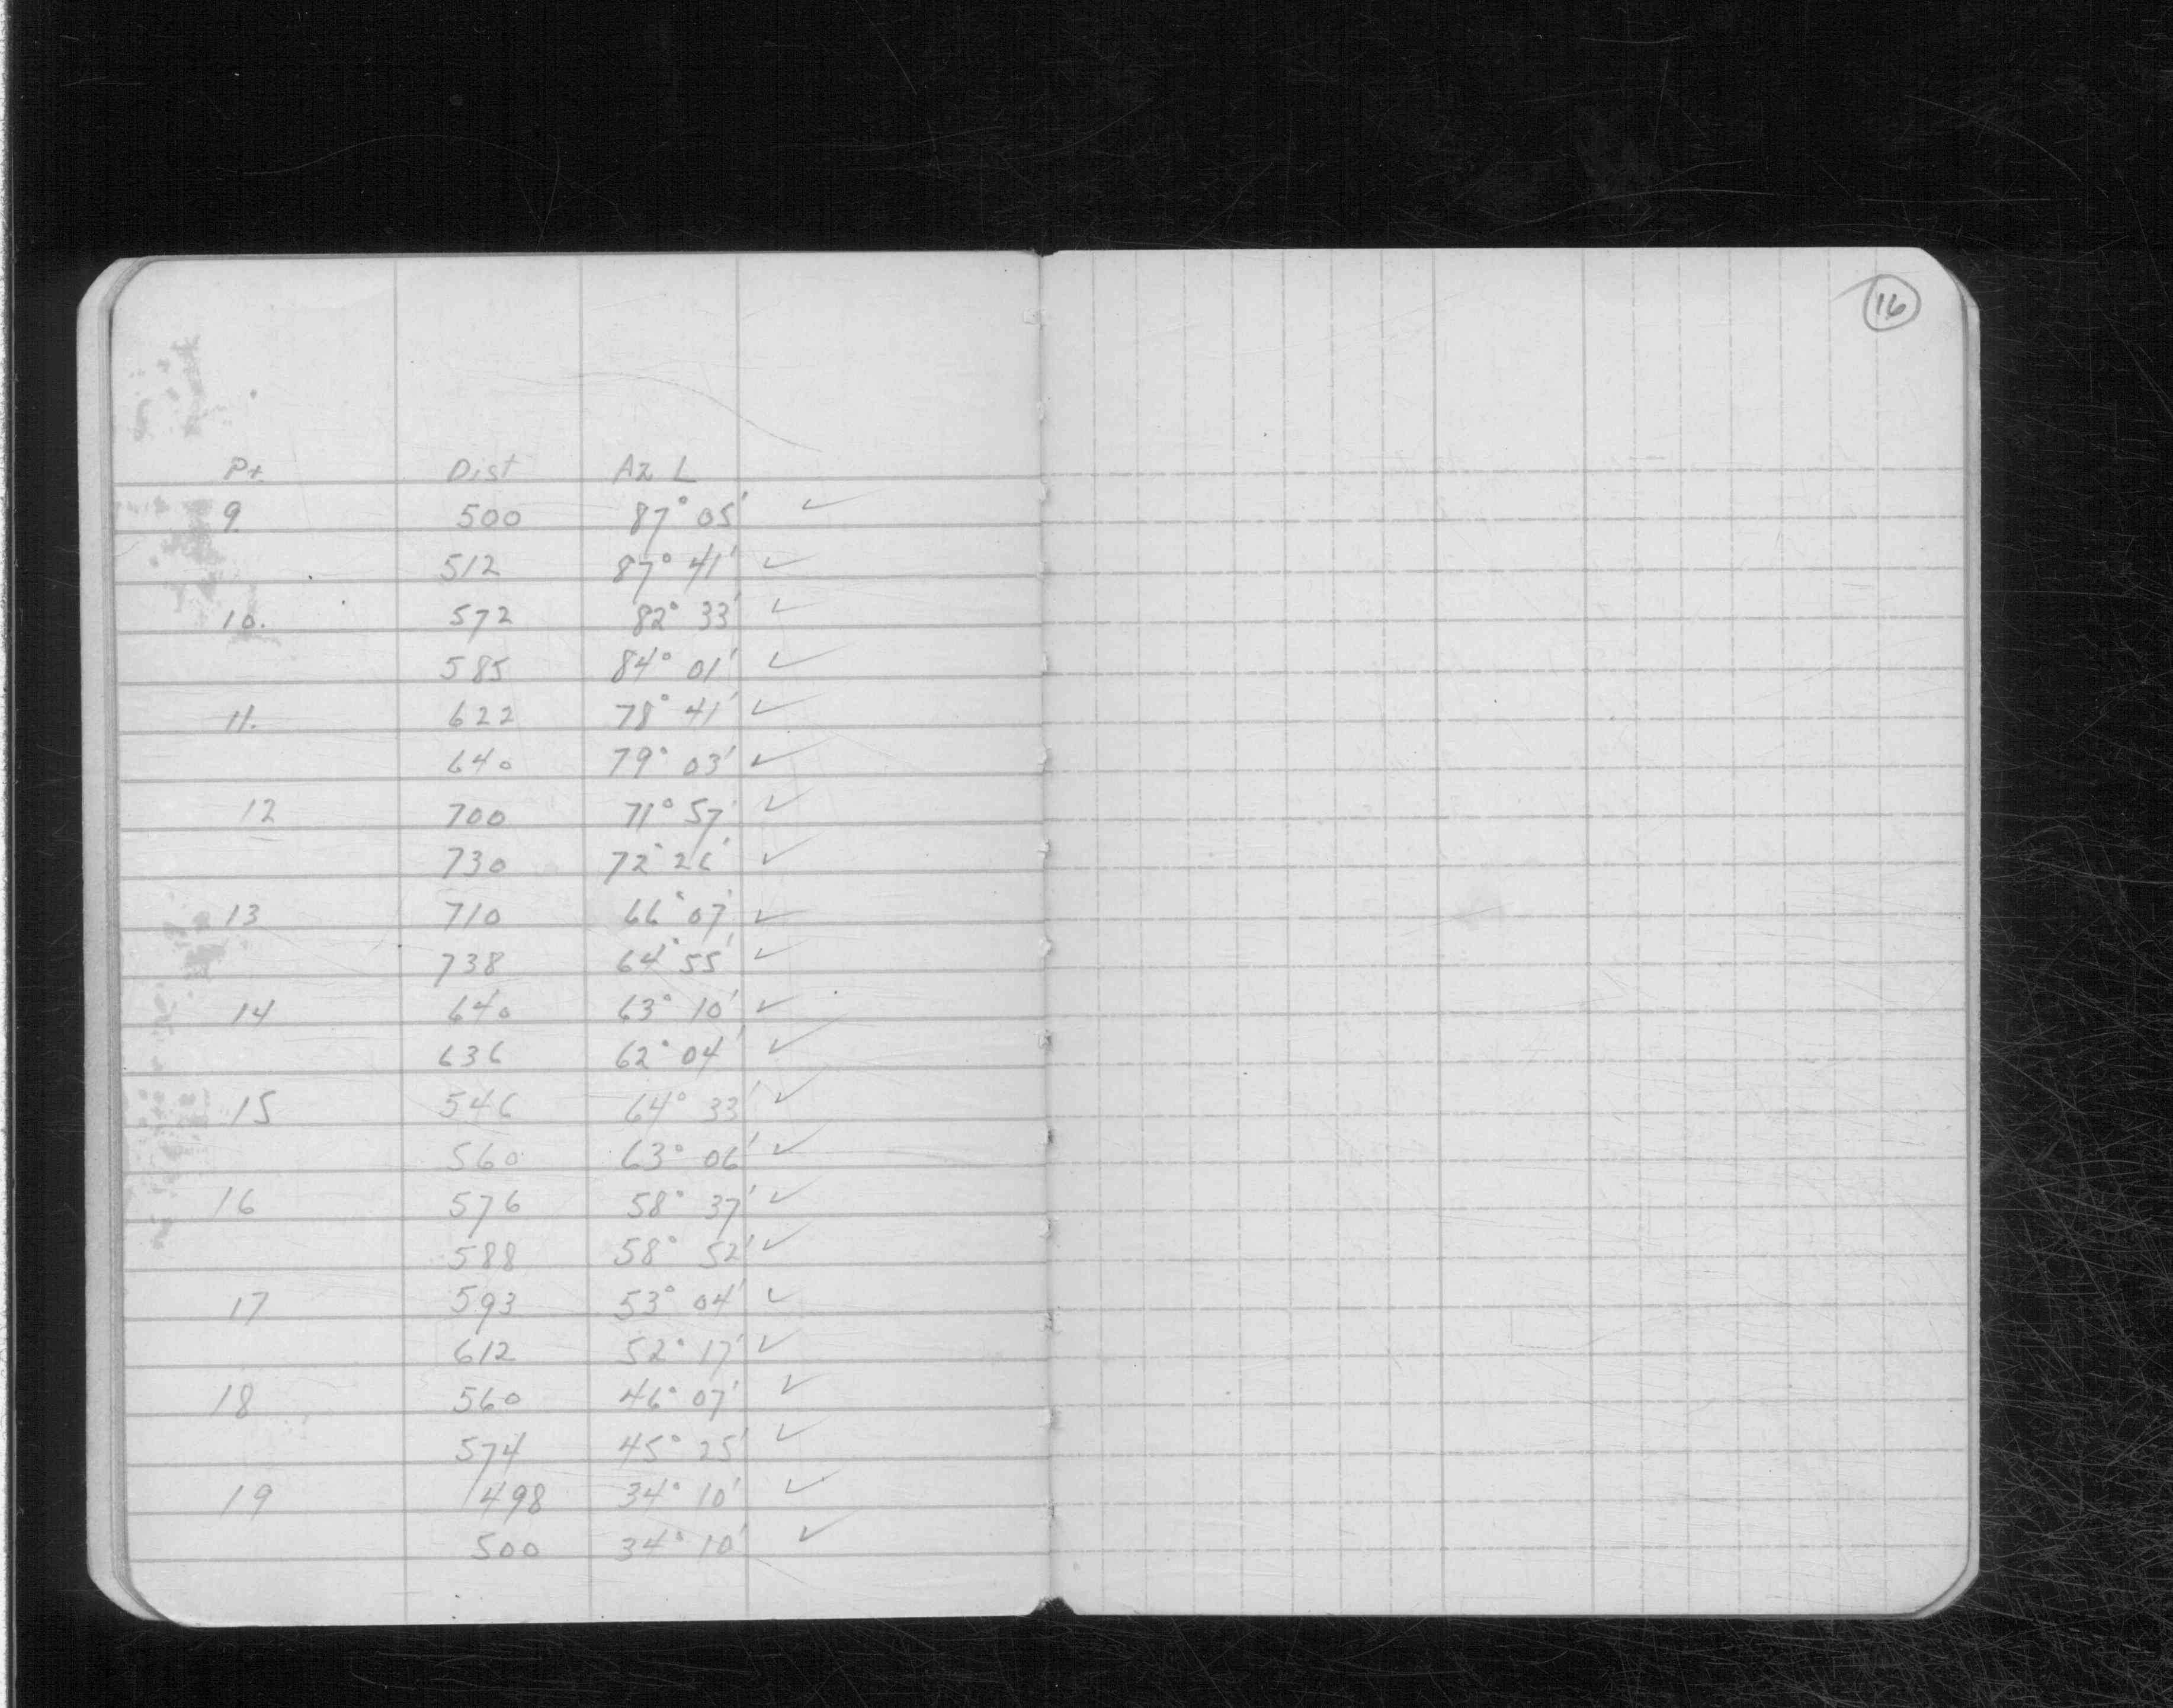 16
Pt. Dist Az L
9. 500 87° 05' ✓
512 87° 41' ✓
10. 572 82° 33' ✓
585 84° 01' ✓
11. 622 78° 41' ✓
640 79° 03' ✓
12 700 71° 57' ✓
730 72° 26' ✓
13 710 66° 07' ✓
738 64° 55' ✓
14 640 63° 10' ✓
636 62° 04' ✓
15 546 64° 33' ✓
560 63° 06' ✓
16 576 58° 37' ✓
588 58° 52' ✓
17 593 53° 04' ✓
612 52° 17' ✓
18 560 46° 07' ✓
574 45° 25' ✓
19 498 34° 10' ✓
500 34° 10' ✓